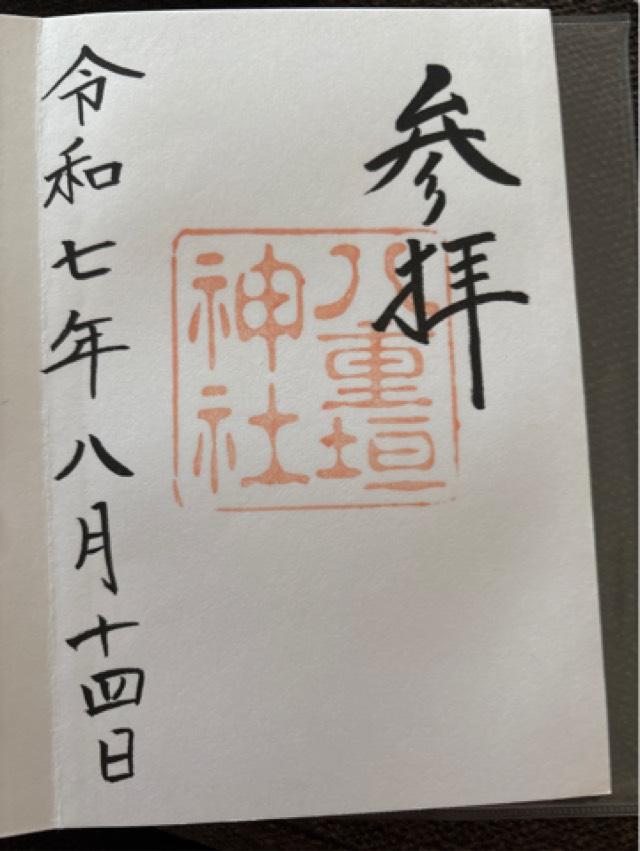 参拝
八重垣
神社
令和七年八月十四日